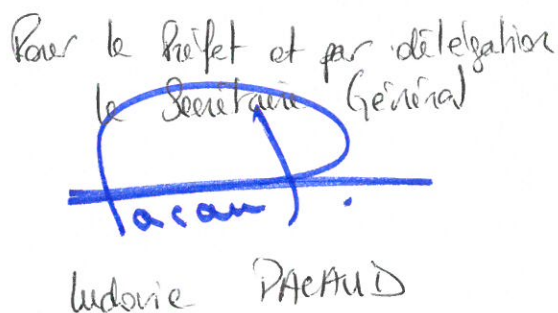 Pour le Préfet et par délégation
le Secrétaire Général
Pacaud.
Ludovic PACAUD